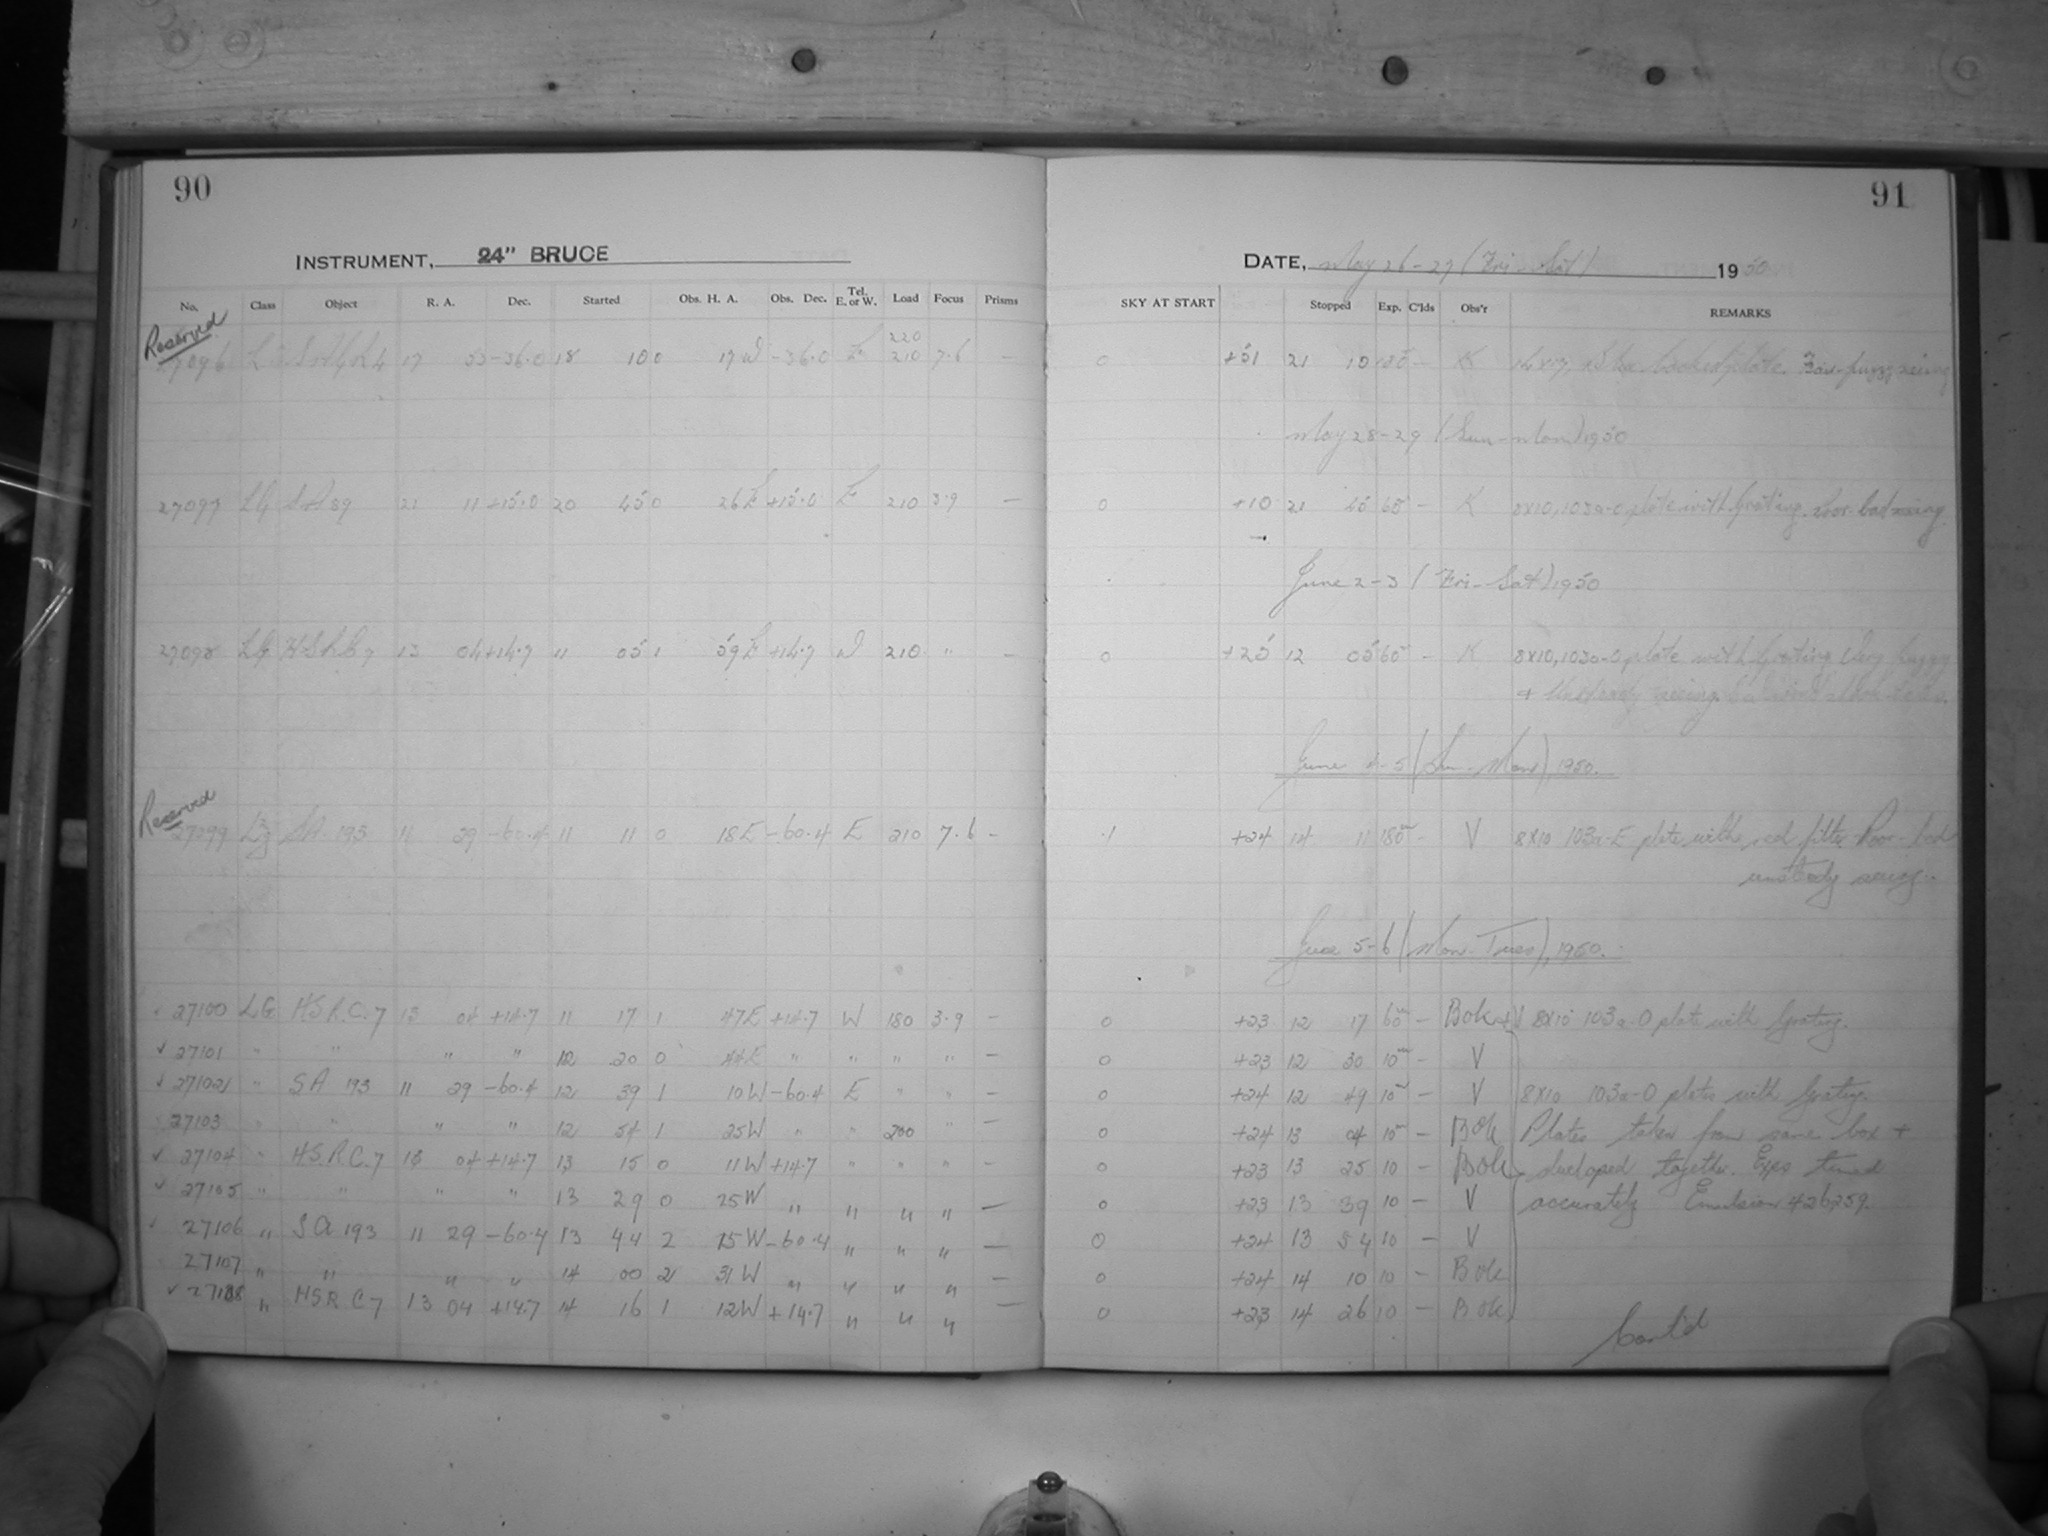 90
91
INSTRUMENT, 24" BRUCE
DATE, May 26-27 (Fri-Sat) 1950
No. Class Object R. A. Dec. Started Obs. H. A. Obs. Dec. Tel. E. or W. Load Focus Prisms SKY AT START Stopped Exp. C'lds Obs'r REMARKS
Reserved
220
27096 17 53 -36.0 18 10 0 17W -36.0 E 210 7.6 — 0 +31 21 10 180 — K plate. Fair-fuzzy seeing
May 28-29 (Sun-Mon) 1950
27097 LG SA 89 21 11 +15.0 20 45 0 26E +15.0 E 210 3.9 — 0 +10 21 45 60 — K 8x10, 103a-O plate with Grating. Poor-bad seeing
June 2-3 (Fri-Sat) 1950
27098 LG HSRC 7 13 04 +14.7 11 05 1 59E +14.7 W 210 " — 0 +25 12 05 60 — K 8x10, 103a-O plate with Grating Very fuzzy
+ Unsteady seeing.
June 4-5 (Sun-Mon), 1950.
Reserved
27099 SA 193 11 29 -60.4 11 11 0 18E -60.4 E 210 7.6 — .1 +24 14 11 180m — V 8x10 103a-E plate with red filter. Poor-bad
unsteady seeing.
June 5-6 (Mon-Tues), 1950.
✓ 27100 LG HSRC. 7 13 04 +14.7 11 17 1 47E +14.7 W 180 3.9 — 0 +23 12 17 60m — Bok + V 8x10 103a-O plate with Grating.
✓ 27101 " " " " 12 20 0 44E " " " " — 0 +23 12 30 10m — V
✓ 27102 " SA 193 11 29 -60.4 12 39 1 10W -60.4 E " " — 0 +24 12 49 10m — V 8x10 103a-O plates with Grating.
27103 " " " " 12 54 1 25W " " 200 " — 0 +24 13 04 10m — Bok Plates taken from same box +
✓ 27104 " HSRC. 7 13 04 +14.7 13 15 0 11W +14.7 " " " — 0 +23 13 25 10 — Bok developed together. Exps timed
✓ 27105 " " " " 13 29 0 25W " " " " — 0 +23 13 39 10 — V accurately Emulsion 426259.
✓ 27106 " SA 193 11 29 -60.4 13 44 2 15W -60.4 " " " — 0 +24 13 54 10 — V
27107 " " " " 14 00 2 31W " " " " — 0 +24 14 10 10 — Bok
✓ 27108 " HSRC 7 13 04 +14.7 14 16 1 12W +14.7 " " " — 0 +23 14 26 10 — Bok
Cont'd